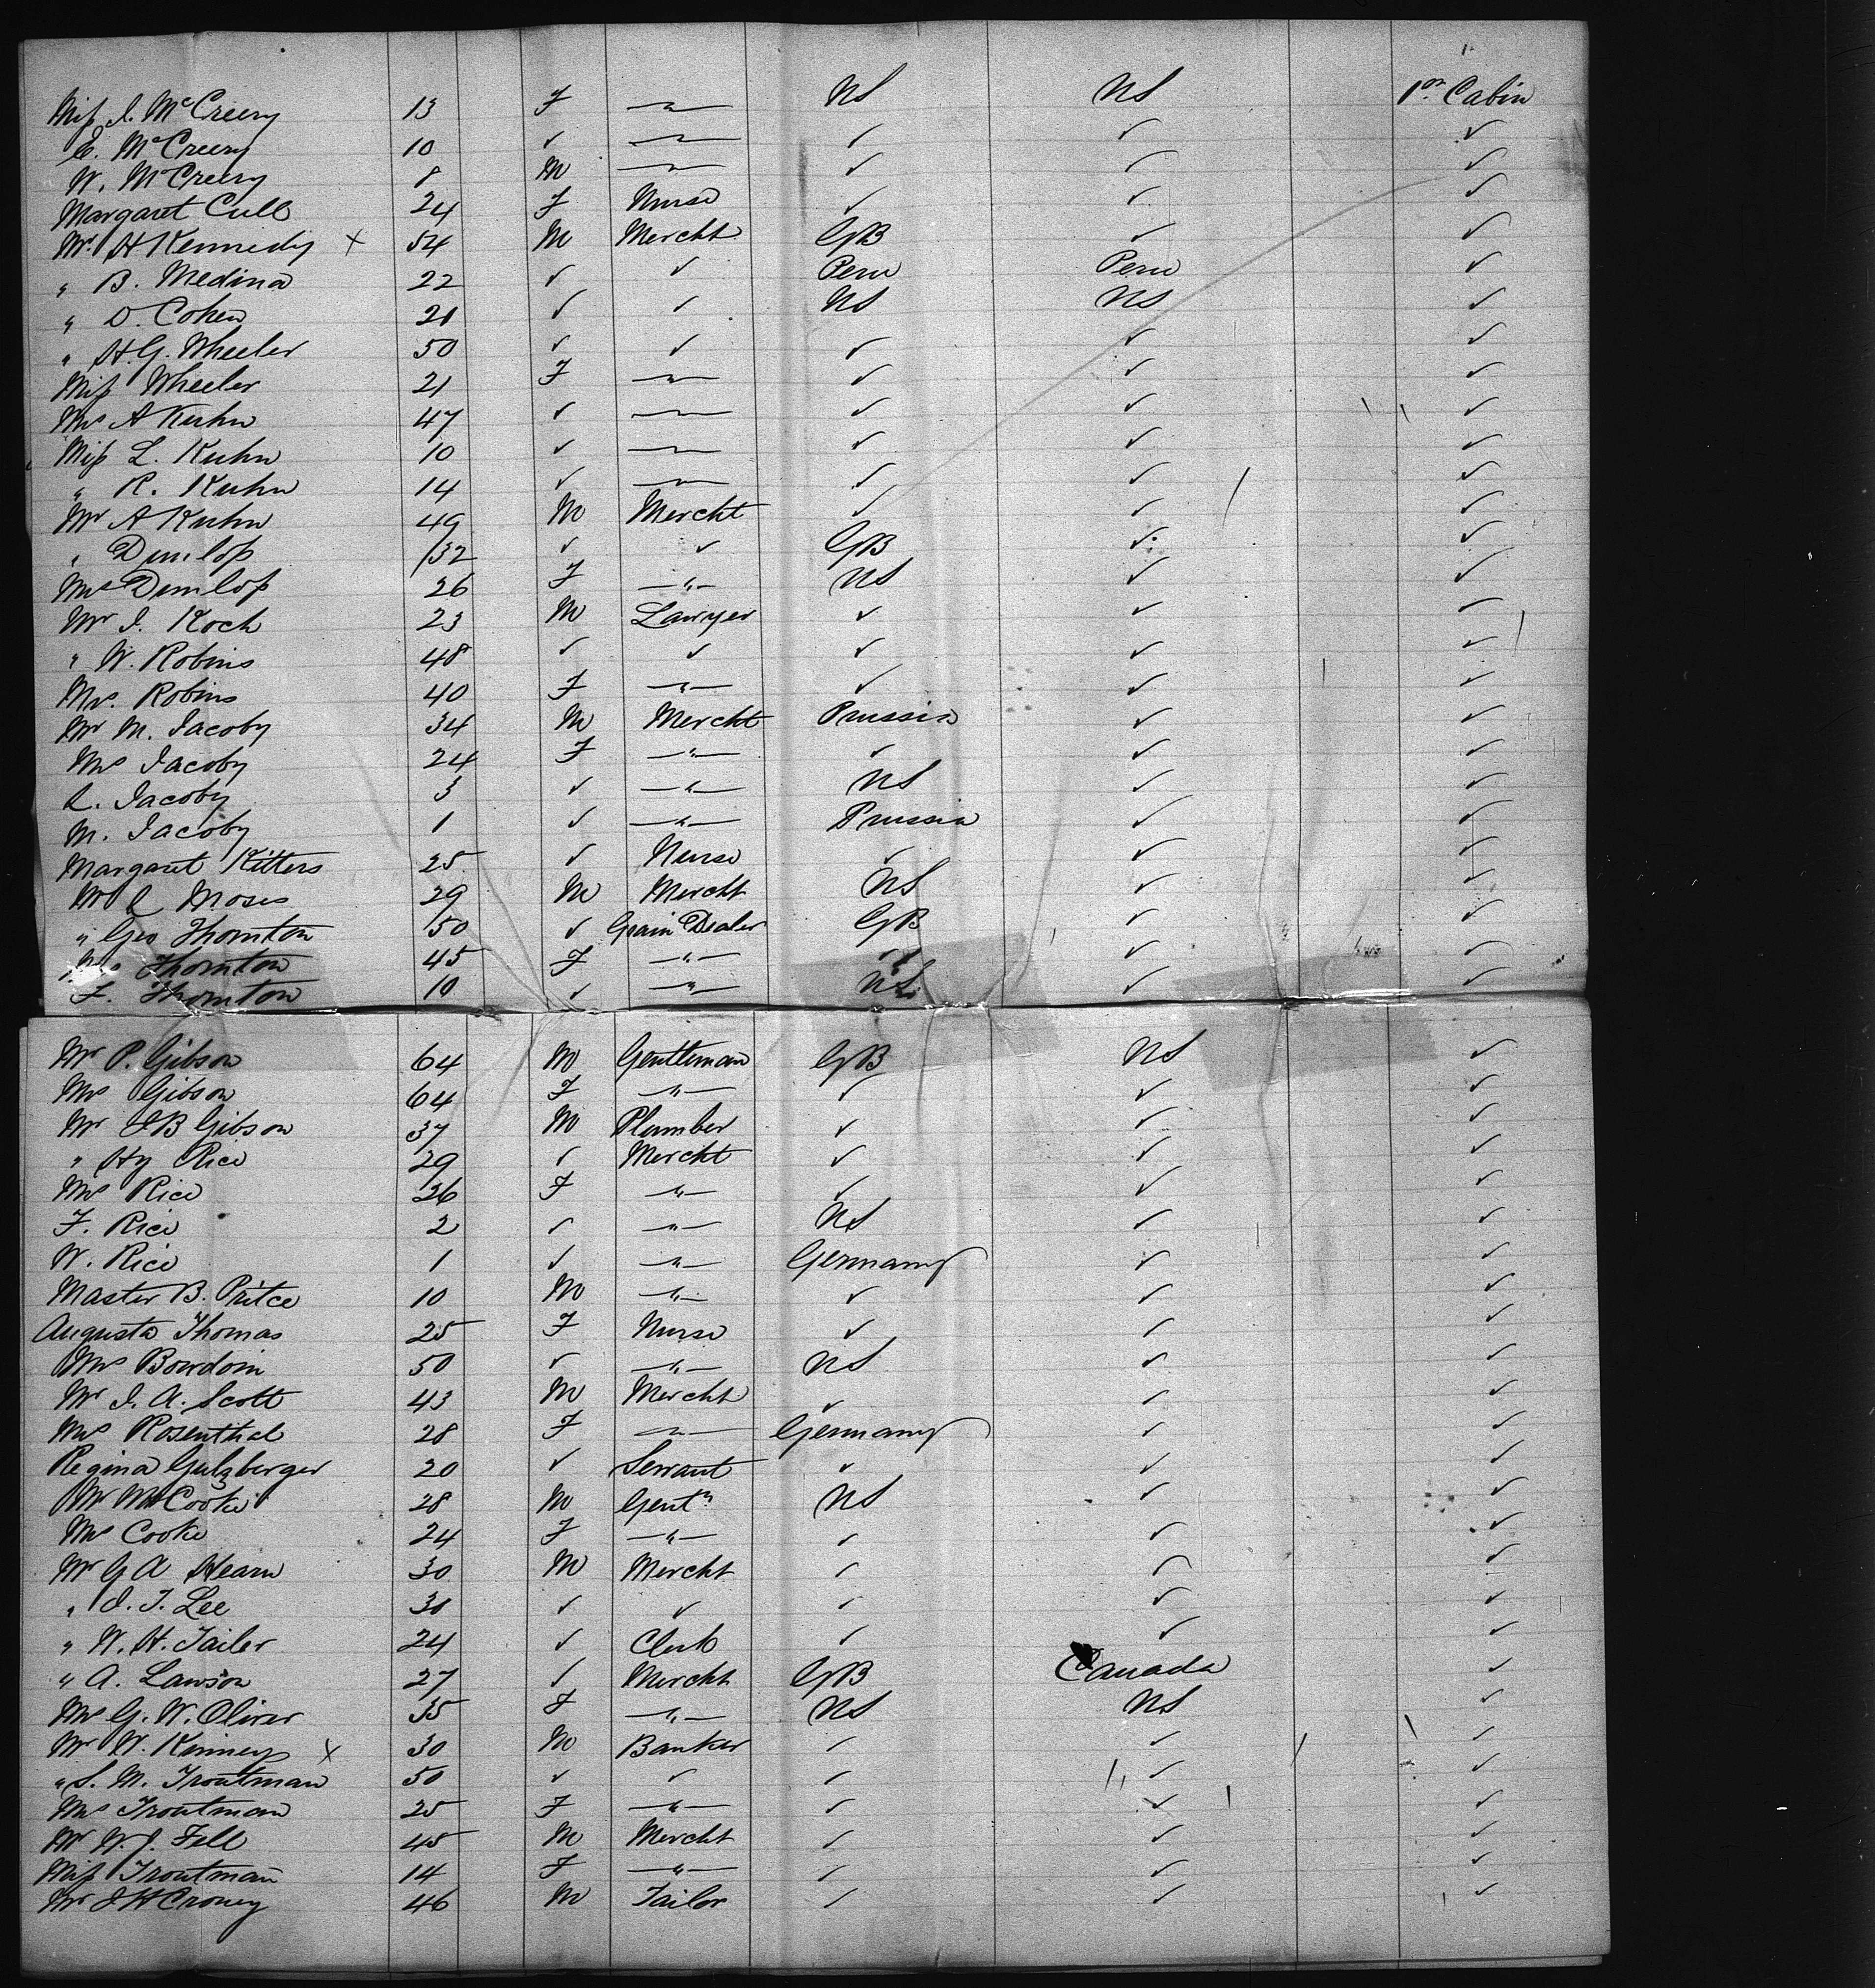 Miss I. McCreery 13 F —"— US US 1st Cabin
E. McCreery 10 ✓ —"— ✓ ✓ ✓
W. McCreery 8 M —"— ✓ ✓ ✓
Margaret Cull 24 F Nurse ✓ ✓ ✓
Mr. H Kennedy x 54 M Mercht GB ✓ ✓
" B. Medina 22 ✓ ✓ Peru Peru ✓
" D. Cohen 21 ✓ ✓ US US ✓
" H.G. Wheeler 50 ✓ ✓ ✓ ✓ ✓
Miss Wheeler 21 F —"— ✓ ✓ ✓
Mrs A Kuhn 47 ✓ —"— ✓ ✓ ✓
Miss L. Kuhn 10 ✓ —"— ✓ ✓ ✓
" R. Kuhn 14 ✓ —"— ✓ ✓ ✓
Mr A Kuhn 49 M Mercht ✓ ✓ ✓
" Dunlop 32 ✓ ✓ GB ✓ ✓
Mrs Dunlop 26 F —"— US ✓ ✓
Mr I. Koch 23 M Lawyer ✓ ✓ ✓
" W. Robins 48 ✓ ✓ ✓ ✓ ✓
Mrs. Robins 40 F —"— ✓ ✓ ✓
Mr M. Jacoby 34 M Mercht Prussia ✓ ✓
Mrs Jacoby 24 F —"— ✓ ✓ ✓
L. Jacoby 3 ✓ —"— US ✓ ✓
M. Jacoby 1 ✓ —"— Prussia ✓ ✓
Margaret Kitters 25 ✓ Nurse ✓ ✓ ✓
Mr L Moses 29 M Mercht US ✓ ✓
" Geo Thornton 50 ✓ Grain Dealer GB ✓ ✓
Mrs Thornton 45 F —"— ✓ ✓ ✓
F. Thornton 10 ✓ —"— US ✓ ✓
Mr P. Gibson 64 M Gentleman GB US ✓
Mrs Gibson 64 F —"— ✓ ✓ ✓
Mr J B Gibson 37 M Plumber ✓ ✓ ✓
" Hy Rice 29 ✓ Mercht ✓ ✓ ✓
Mrs Rice 26 F —"— ✓ ✓ ✓
F. Rice 2 ✓ —"— US ✓ ✓
W. Rice 1 ✓ —"— Germany ✓ ✓
Master B. Pritce 10 M —"— ✓ ✓ ✓
Augusta Thomas 25 F Nurse ✓ ✓ ✓
Mrs Bowdoin 50 ✓ —"— US ✓ ✓
Mr J. A. Scott 43 M Mercht ✓ ✓ ✓
Mrs Rosenthal 28 F —"— Germany ✓ ✓
Regina Gulzberger 20 ✓ Servant ✓ ✓ ✓
Mr WH Cooke 28 M Gentn US ✓ ✓
Mrs Cooke 24 F —"— ✓ ✓ ✓
Mr G A Hearn 30 M Mercht ✓ ✓ ✓
" I. T. Lee 30 ✓ ✓ ✓ ✓ ✓
" W. H. Tailer 24 ✓ Clerk ✓ ✓ ✓
" A. Lawson 27 ✓ Mercht GB Canada ✓
Mrs G. W. Oliver 35 F —"— US US ✓
Mr W. Kinney x 30 M Banker ✓ ✓ ✓
" S. M. Troutman 50 ✓ ✓ ✓ ✓ ✓
Mrs Troutman 25 F —"— ✓ ✓ ✓
Mr W. J. Fell 45 M Mercht ✓ ✓ ✓
Miss Troutman 14 F —"— ✓ ✓ ✓
Mr J H Croney 46 M Tailor ✓ ✓ ✓